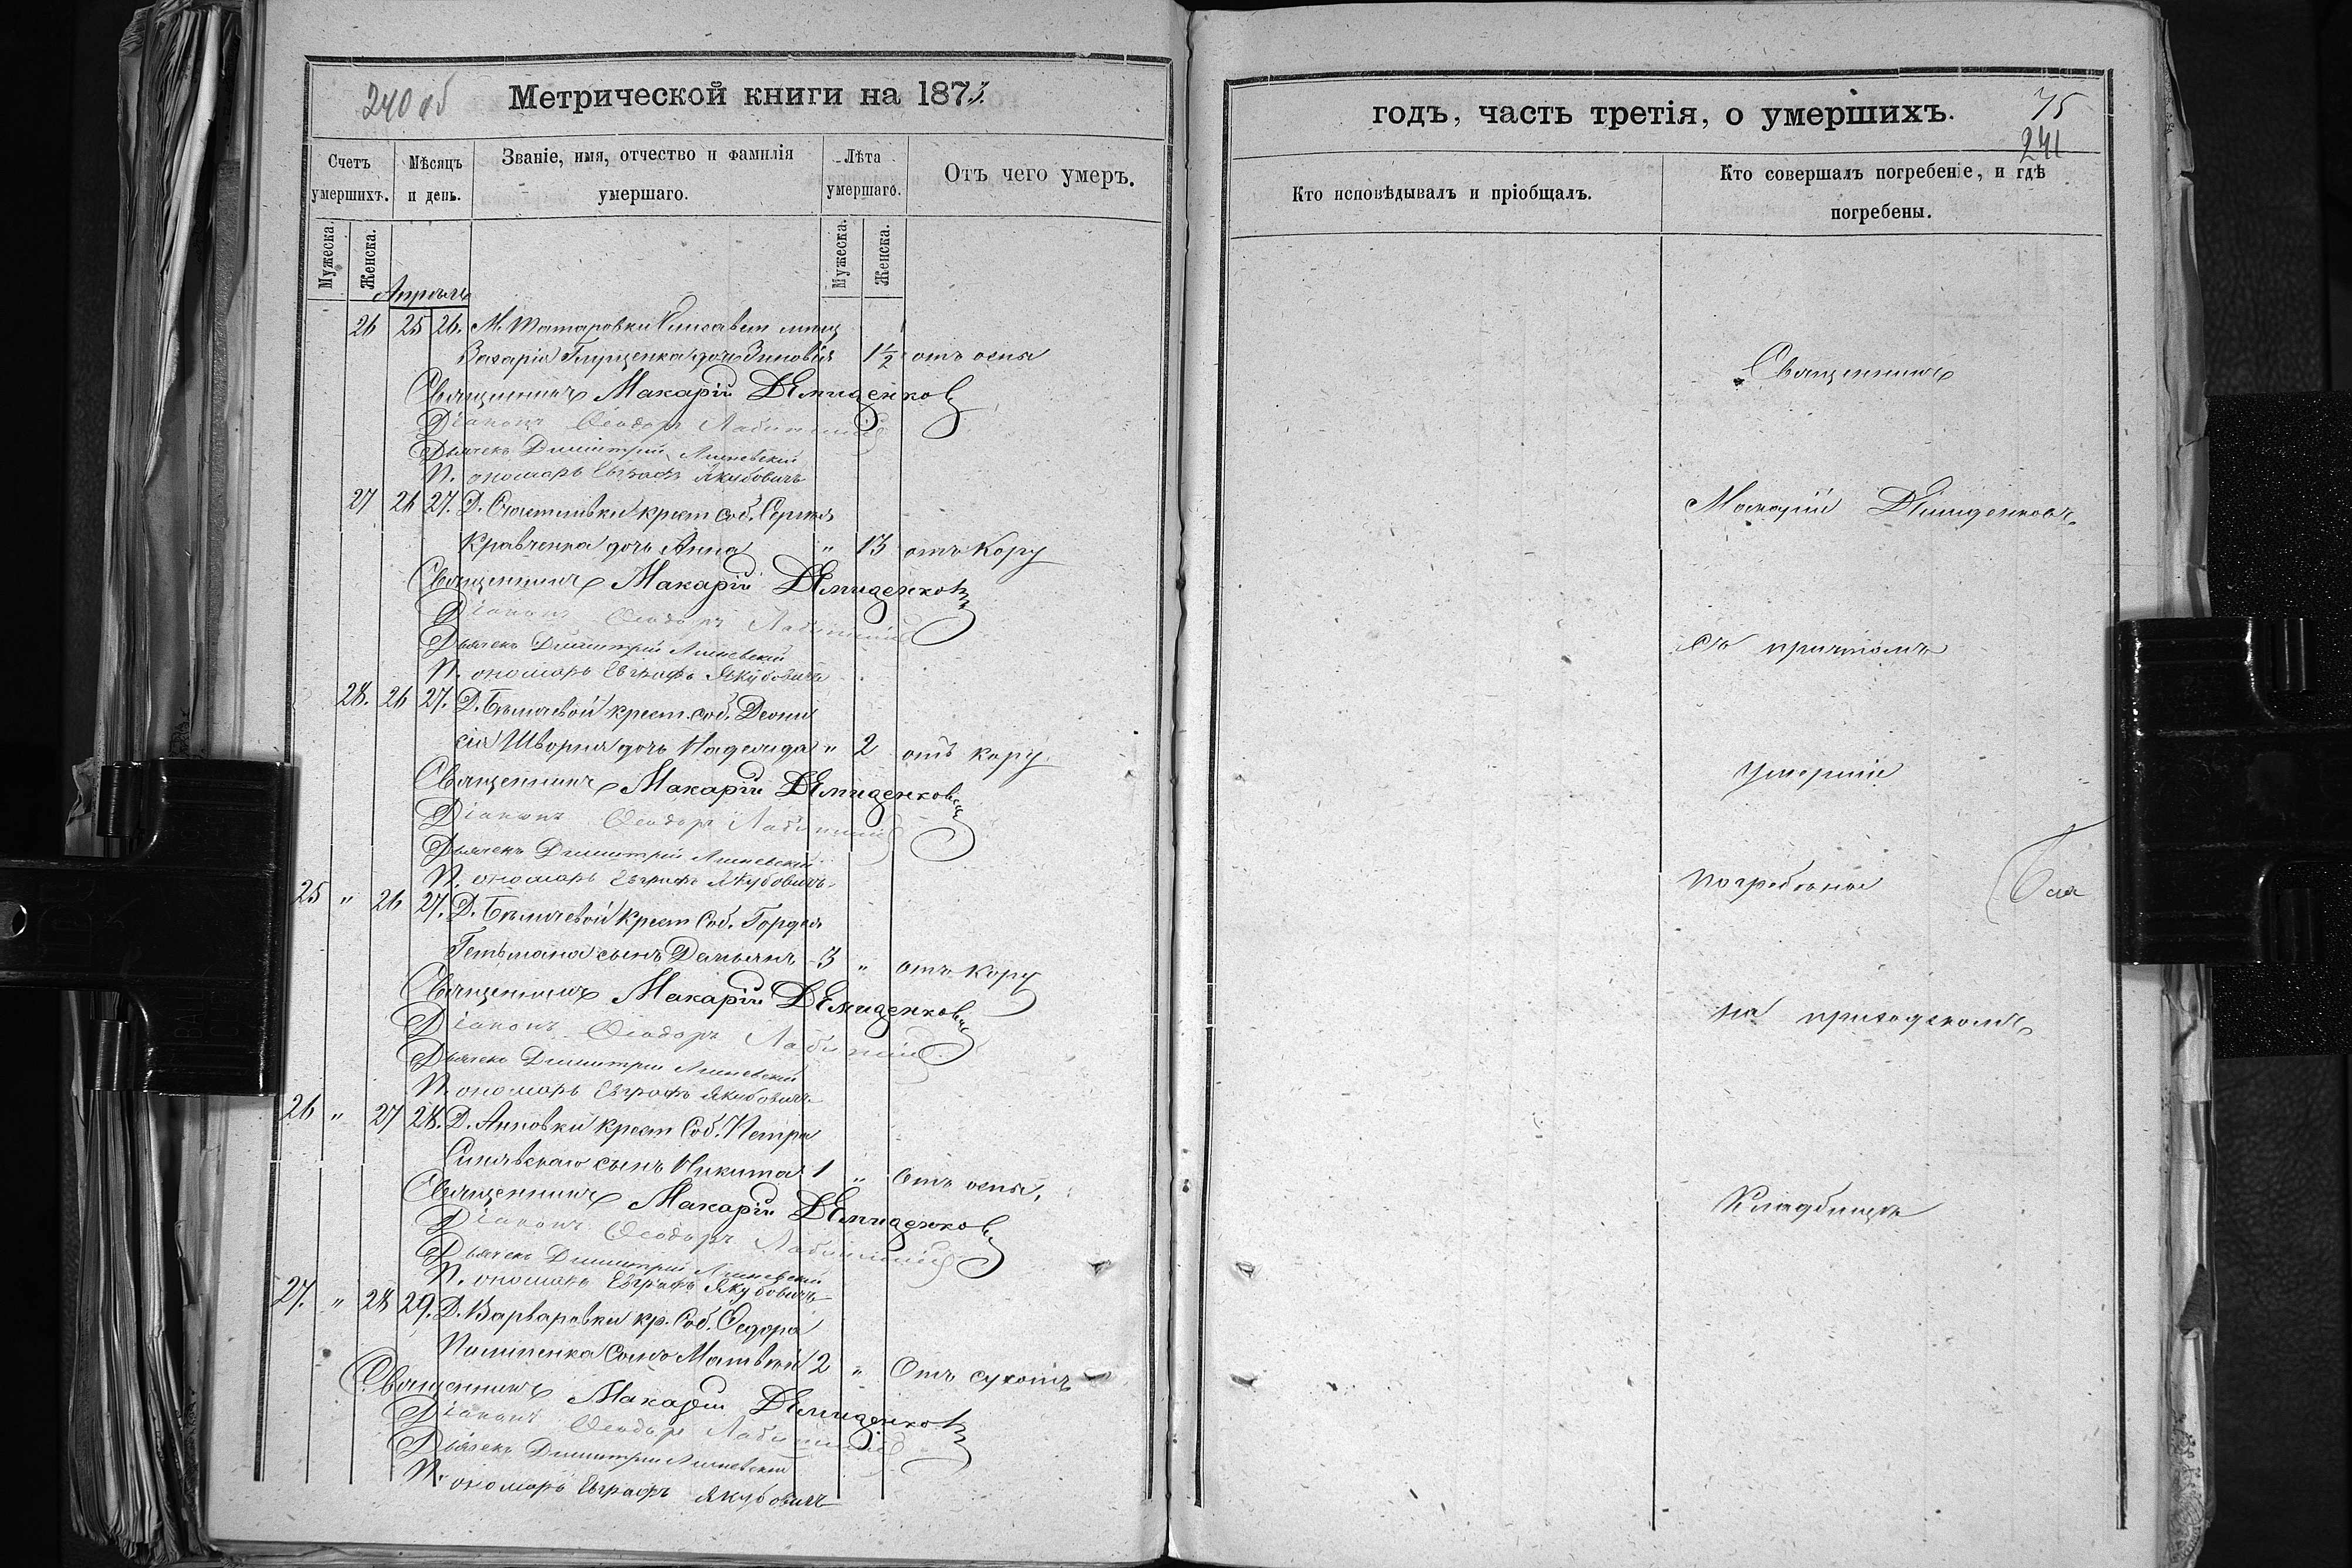 240 об
Метрической книги на 1873.
Счетъ умершихъ.
Мѣсяцъ и день.
Званіе, имя, отчество и фамилія умершаго.
Лѣта умершаго.
Отъ чего умеръ.
Мужеска.
Женска.
Мужеска.
Женска.
Апрѣль
26 25 26. М. Татаровки
Захарія Глущенка дочь Зиновія 1½ отъ оспы
Священникъ Макарій Демиденковъ
Діаконъ Ѳеодоръ
Дьячекъ Димитрій
Пономарь Евграфъ Якубовичъ
27 26 27. Д. крест. соб. Сергѣя
Кравченка дочь Анна " 13 отъ кору
Священникъ Макарій Демиденковъ
Діаконъ Ѳеодоръ
Дьячекъ Димитрій
Пономарь Евграфъ Якубовичъ
28. 26 27. Д. крест. соб. Деони
сія Шворня дочь " 2 отъ кору.
Священникъ Макарій Демиденковъ
Діаконъ Ѳеодоръ
Дьячекъ Димитрій
Пономарь Евграфъ Якубовичъ
25 " 26 27. Д. крест. соб. Гордея
Гетьмана сынъ Дамьянъ 3 " отъ кору
Священникъ Макарій Демиденковъ
Діаконъ Ѳеодоръ
Дьячекъ Димитрій
Пономарь Евграфъ Якубовичъ
26 " 27 28. Д. Анновки крест. соб. Петра
Синявскаго сынъ Никита 1 " отъ оспы,
Священникъ Макарій Демиденковъ
Діаконъ Ѳеодоръ
Дьячекъ Димитрій
Пономарь Евграфъ Якубовичъ
27. " 28 29. Д. Варваровки кр. соб. Ѳедора
Пилипенка сынъ Матвѣй 2 " отъ сухотъ
Священникъ Макарій Демиденковъ
Діаконъ Ѳеодоръ
Дьячекъ Димитрій
Пономарь Евграфъ Якубовичъ
годъ, часть третія, о умершихъ.
75
241
Кто исповѣдывалъ и пріобщалъ.
Кто совершалъ погребеніе, и гдѣ погребены.
Священникъ
Макарій Демиденковъ
съ причтомъ
умершіе
погребены
на приходскомъ
кладбищѣ